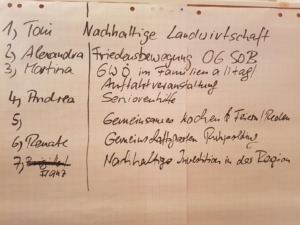 1, Toni Nachhaltige Landwirtschaft
2, Alexandra Friedensbewegung OG SOB
3, Martina GWÖ im Familienalltag/
Auftaktveranstaltung
4, Andrea Seniorenhilfe
5, Gemeinsames Kochen & Feiern/Reden
6, Renate Gemeinschaftsgarten Ruhpolding
7, Nachhaltige Investition in der Region
Franz